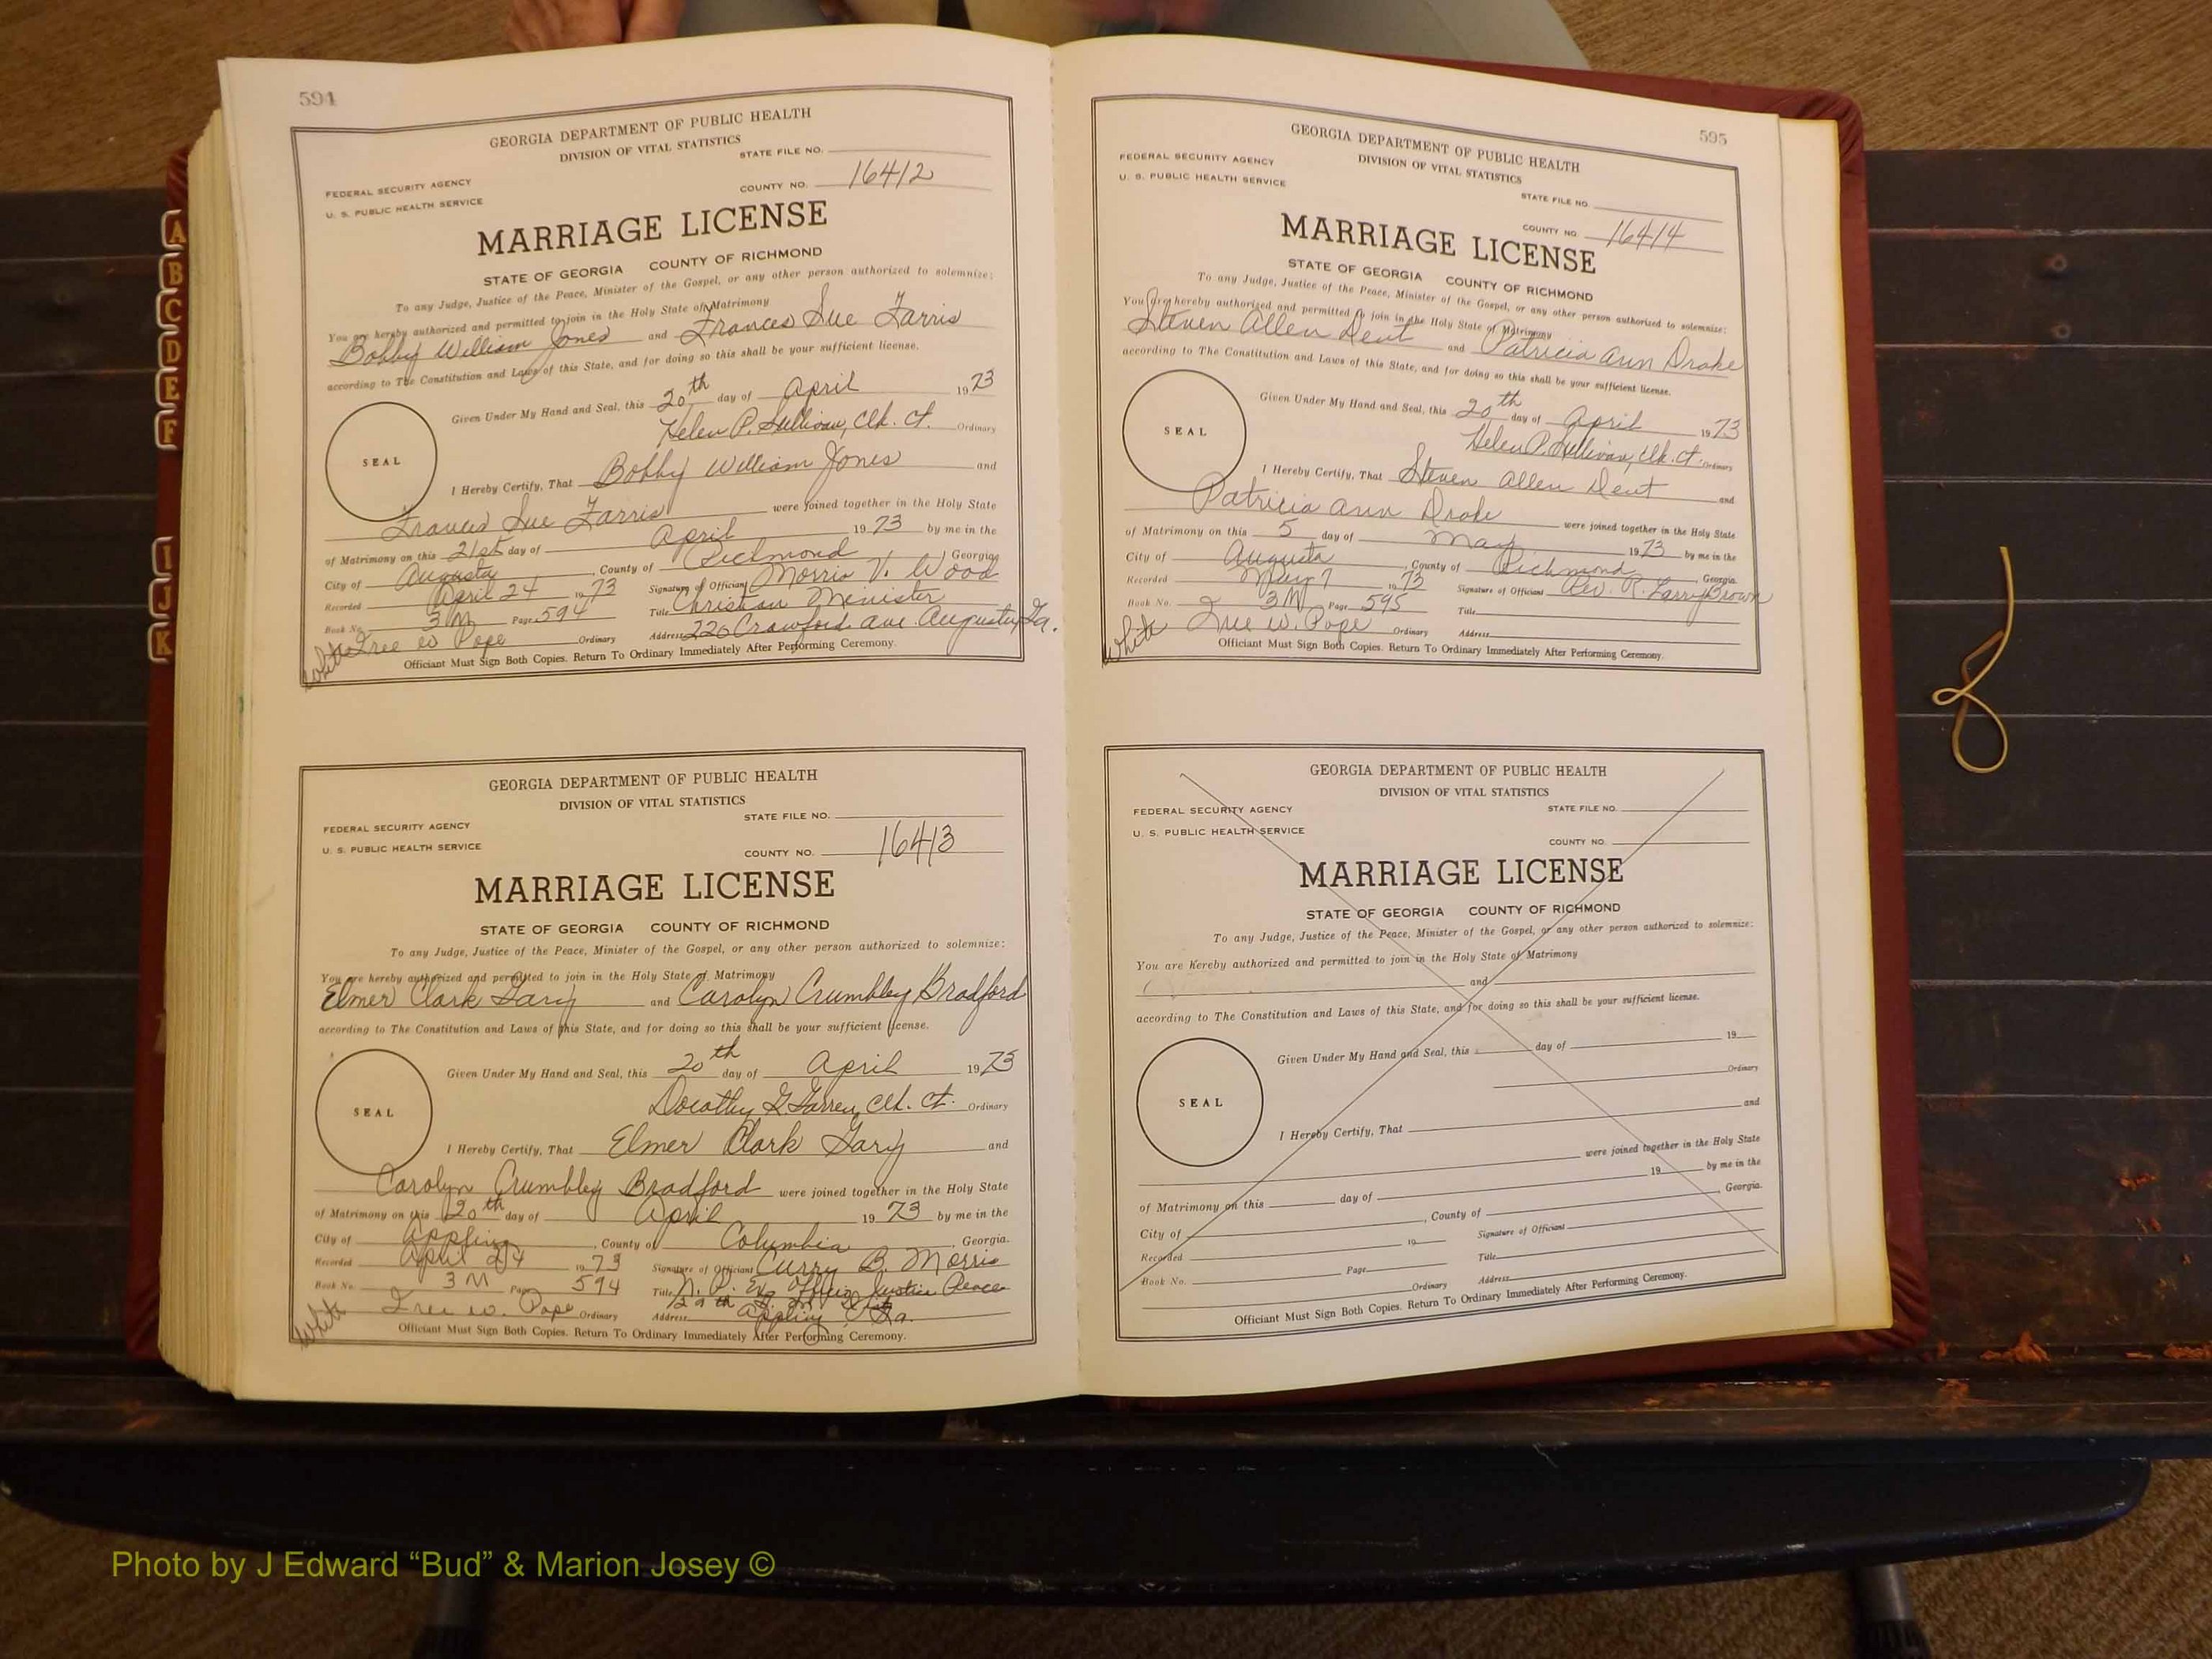 A
B
C
D
E
F
I
J
K
594
GEORGIA DEPARTMENT OF PUBLIC HEALTH
DIVISION OF VITAL STATISTICS
STATE FILE NO.
FEDERAL SECURITY AGENCY
U. S. PUBLIC HEALTH SERVICE
COUNTY NO. 16412
MARRIAGE LICENSE
STATE OF GEORGIA COUNTY OF RICHMOND
To any Judge, Justice of the Peace, Minister of the Gospel, or any other person authorized to solemnize:
You are hereby authorized and permitted to join in the Holy State of Matrimony
Bobby William Jones and Frances Sue Farris
according to The Constitution and Laws of this State, and for doing so this shall be your sufficient license.
Given Under My Hand and Seal, this 20th day of April 1973
Helen P. Sullivan, Clk. Ct. Ordinary
SEAL
I Hereby Certify, That Bobby William Jones and
Frances Sue Farris were joined together in the Holy State
of Matrimony on this 21st day of April 1973 by me in the
City of Augusta, County of Richmond Georgia
Recorded April 24 1973 Signature of Officiant Morris V. Wood
Book No. 3M Page 594 Title Christian Minister
Free W Pope Ordinary Address 2220 Crawford ave. Augusta, Ga.
White
Officiant Must Sign Both Copies. Return To Ordinary Immediately After Performing Ceremony.
GEORGIA DEPARTMENT OF PUBLIC HEALTH
DIVISION OF VITAL STATISTICS
STATE FILE NO.
FEDERAL SECURITY AGENCY
U. S. PUBLIC HEALTH SERVICE
COUNTY NO. 16413
MARRIAGE LICENSE
STATE OF GEORGIA COUNTY OF RICHMOND
To any Judge, Justice of the Peace, Minister of the Gospel, or any other person authorized to solemnize:
You are hereby authorized and permitted to join in the Holy State of Matrimony
Elmer Clark Gary and Carolyn Crumbley Bradford
according to The Constitution and Laws of this State, and for doing so this shall be your sufficient license.
Given Under My Hand and Seal, this 20th day of April 1973
Dorothy G Clk. Ct. Ordinary
SEAL
I Hereby Certify, That Elmer Clark Gary and
Carolyn Crumbley Bradford were joined together in the Holy State
of Matrimony on this 20th day of April 1973 by me in the
City of Appling, County of Columbia, Georgia.
Recorded April 24 1973 Signature of Officiant Curry B. Morris
Book No. 3M Page 594 Title N. P. Ex Officio Justice Peace
129th G. M. Dist.
Free W. Pope Ordinary Address Appling, Ga.
White
Officiant Must Sign Both Copies. Return To Ordinary Immediately After Performing Ceremony.
595
GEORGIA DEPARTMENT OF PUBLIC HEALTH
DIVISION OF VITAL STATISTICS
FEDERAL SECURITY AGENCY
U. S. PUBLIC HEALTH SERVICE
STATE FILE NO.
COUNTY NO. 16414
MARRIAGE LICENSE
STATE OF GEORGIA COUNTY OF RICHMOND
To any Judge, Justice of the Peace, Minister of the Gospel, or any other person authorized to solemnize:
You are hereby authorized and permitted to join in the Holy State of Matrimony
Steven Allen Dent and Patricia Ann Drake
according to The Constitution and Laws of this State, and for doing so this shall be your sufficient license.
Given Under My Hand and Seal, this 20th day of April 1973
Helen P. Sullivan, Clk. Ct. Ordinary
SEAL
I Hereby Certify, That Steven Allen Dent and
Patricia Ann Drake were joined together in the Holy State
of Matrimony on this 5 day of May 1973 by me in the
City of Augusta, County of Richmond, Georgia.
Recorded May 7 1973 Signature of Officiant Rev. R. Larry Brown
Book No. 3M Page 595 Title
Free W. Pope Ordinary Address
White
Officiant Must Sign Both Copies. Return To Ordinary Immediately After Performing Ceremony.
GEORGIA DEPARTMENT OF PUBLIC HEALTH
DIVISION OF VITAL STATISTICS
FEDERAL SECURITY AGENCY
STATE FILE NO.
U. S. PUBLIC HEALTH SERVICE
COUNTY NO.
MARRIAGE LICENSE
STATE OF GEORGIA COUNTY OF RICHMOND
To any Judge, Justice of the Peace, Minister of the Gospel, or any other person authorized to solemnize:
You are hereby authorized and permitted to join in the Holy State of Matrimony
and
according to The Constitution and Laws of this State, and for doing so this shall be your sufficient license.
Given Under My Hand and Seal, this day of 19
Ordinary
SEAL
I Hereby Certify, That and
were joined together in the Holy State
of Matrimony on this day of 19 by me in the
City of , County of , Georgia.
Recorded 19 Signature of Officiant
Book No. Page Title
Ordinary Address
Officiant Must Sign Both Copies. Return To Ordinary Immediately After Performing Ceremony.
Photo by J Edward “Bud” & Marion Josey ©